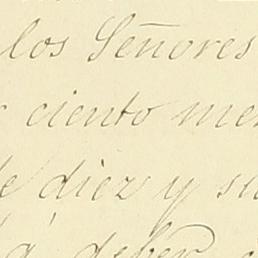 los Señores
ciento
de diez y
á deber